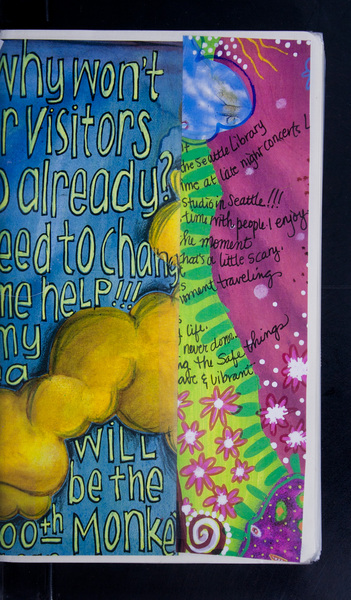 why won't
r visitors
o already?
eed to chang
me help!!!
my
a
will
be the
00th monke
it
the Seattle Library
time at late night concerts!
studio in Seattle!!!
time with people I enjoy
the moment
that's a little scary.
s
ument traveling
f life.
never done.
ng the safe things
ave & vibrant.